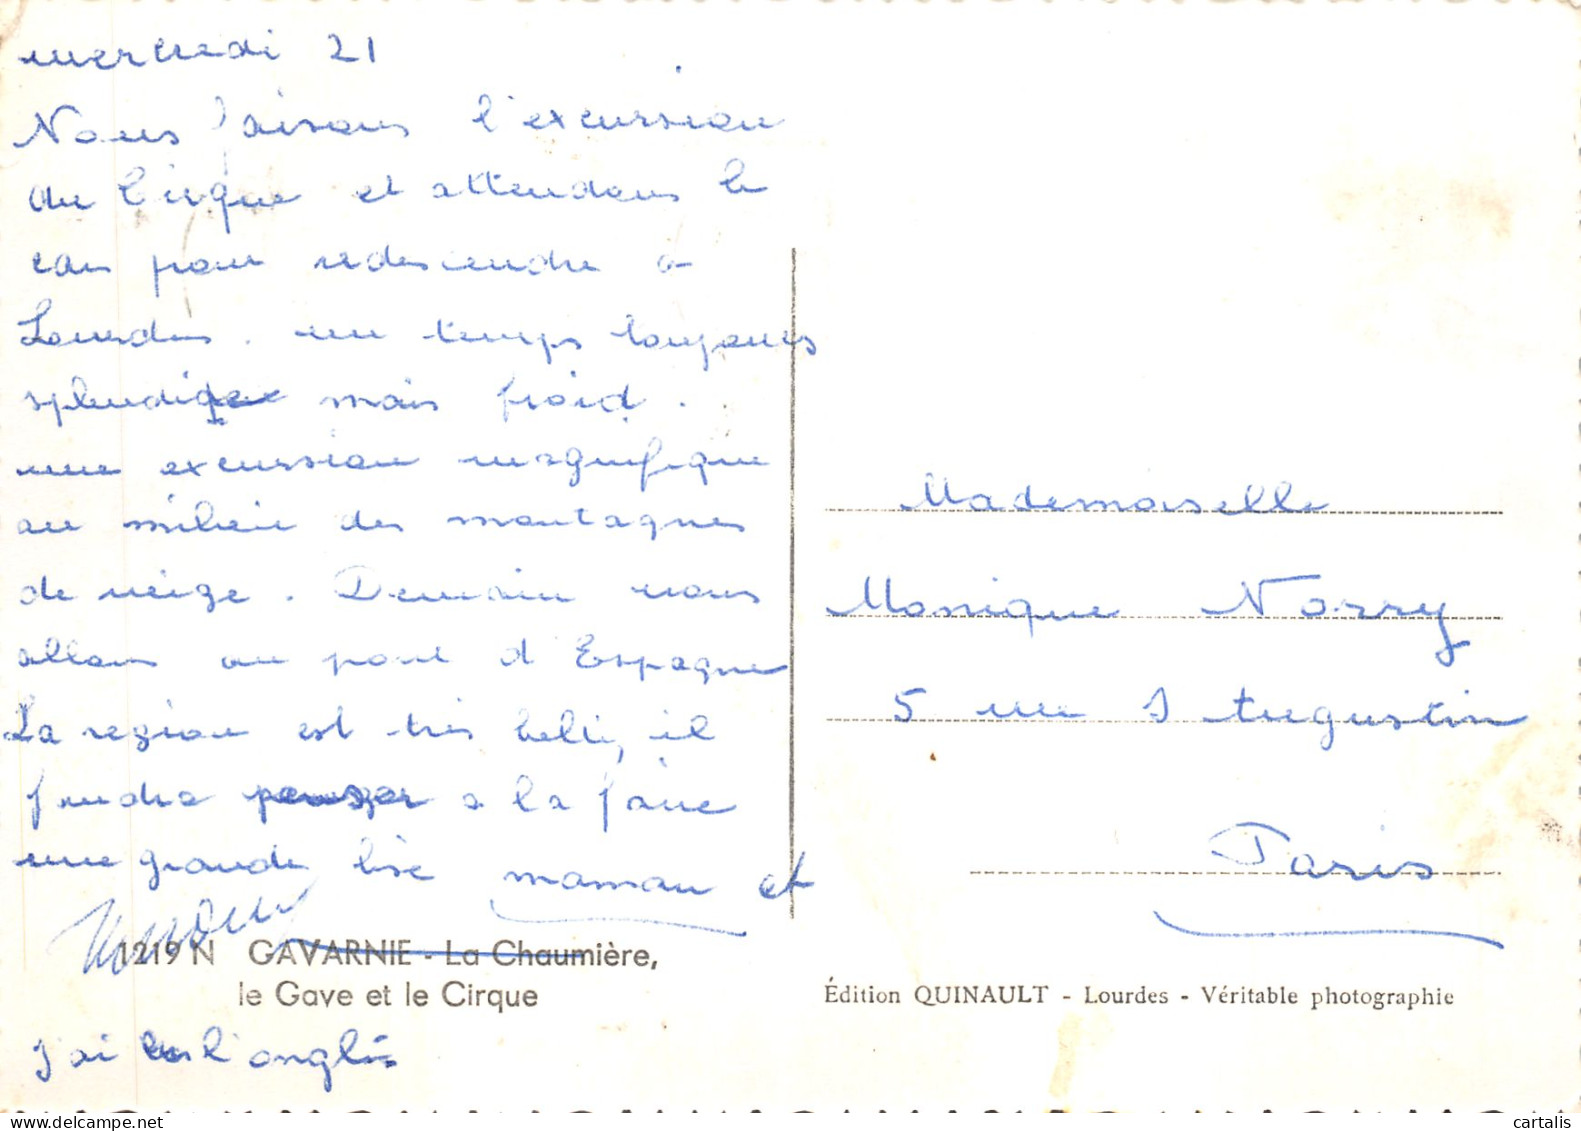 mercredi 21
Nous faisons l'excursion
du Cirque et attendons le
car pour redescendre à
Lourdes. un temps toujours
splendide mais froid.
une excursion magnifique
au milieu des montagnes
de neige. Demain nous
allons au pont d'Espagne
La region est très belle, il
faudra penser a la faire
une grande bise maman et
1219 N GAVARNIE - La Chaumière,
le Gave et le Cirque
j'ai l'anglais
Mademoiselle
Monique Norry
5 rue S Augustin
Paris
Édition QUINAULT - Lourdes - Véritable photographie
cartalis